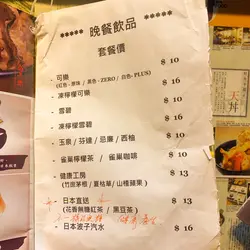 ***** 晚餐飲品 *****
套餐價
- 可樂 $ 10
(紅色 - 原味 / 黑色 - ZERO / 白色 - PLUS)
- 凍檸檬可樂 $ 16
- 雪碧 $ 10
- 凍檸檬雪碧 $ 16
- 玉泉 / 芬達 / 忌廉 / 西柚 $ 10
- 雀巢檸檬茶 / 雀巢咖啡 $ 10
- 健康工房 $ 13
(竹蔗茅根 / 夏枯草 / 山楂蘋果)
- 日本直送 $ 13
(花香無糖紅茶 / 黑豆茶)
- 日本波子汽水 $ 16
天丼